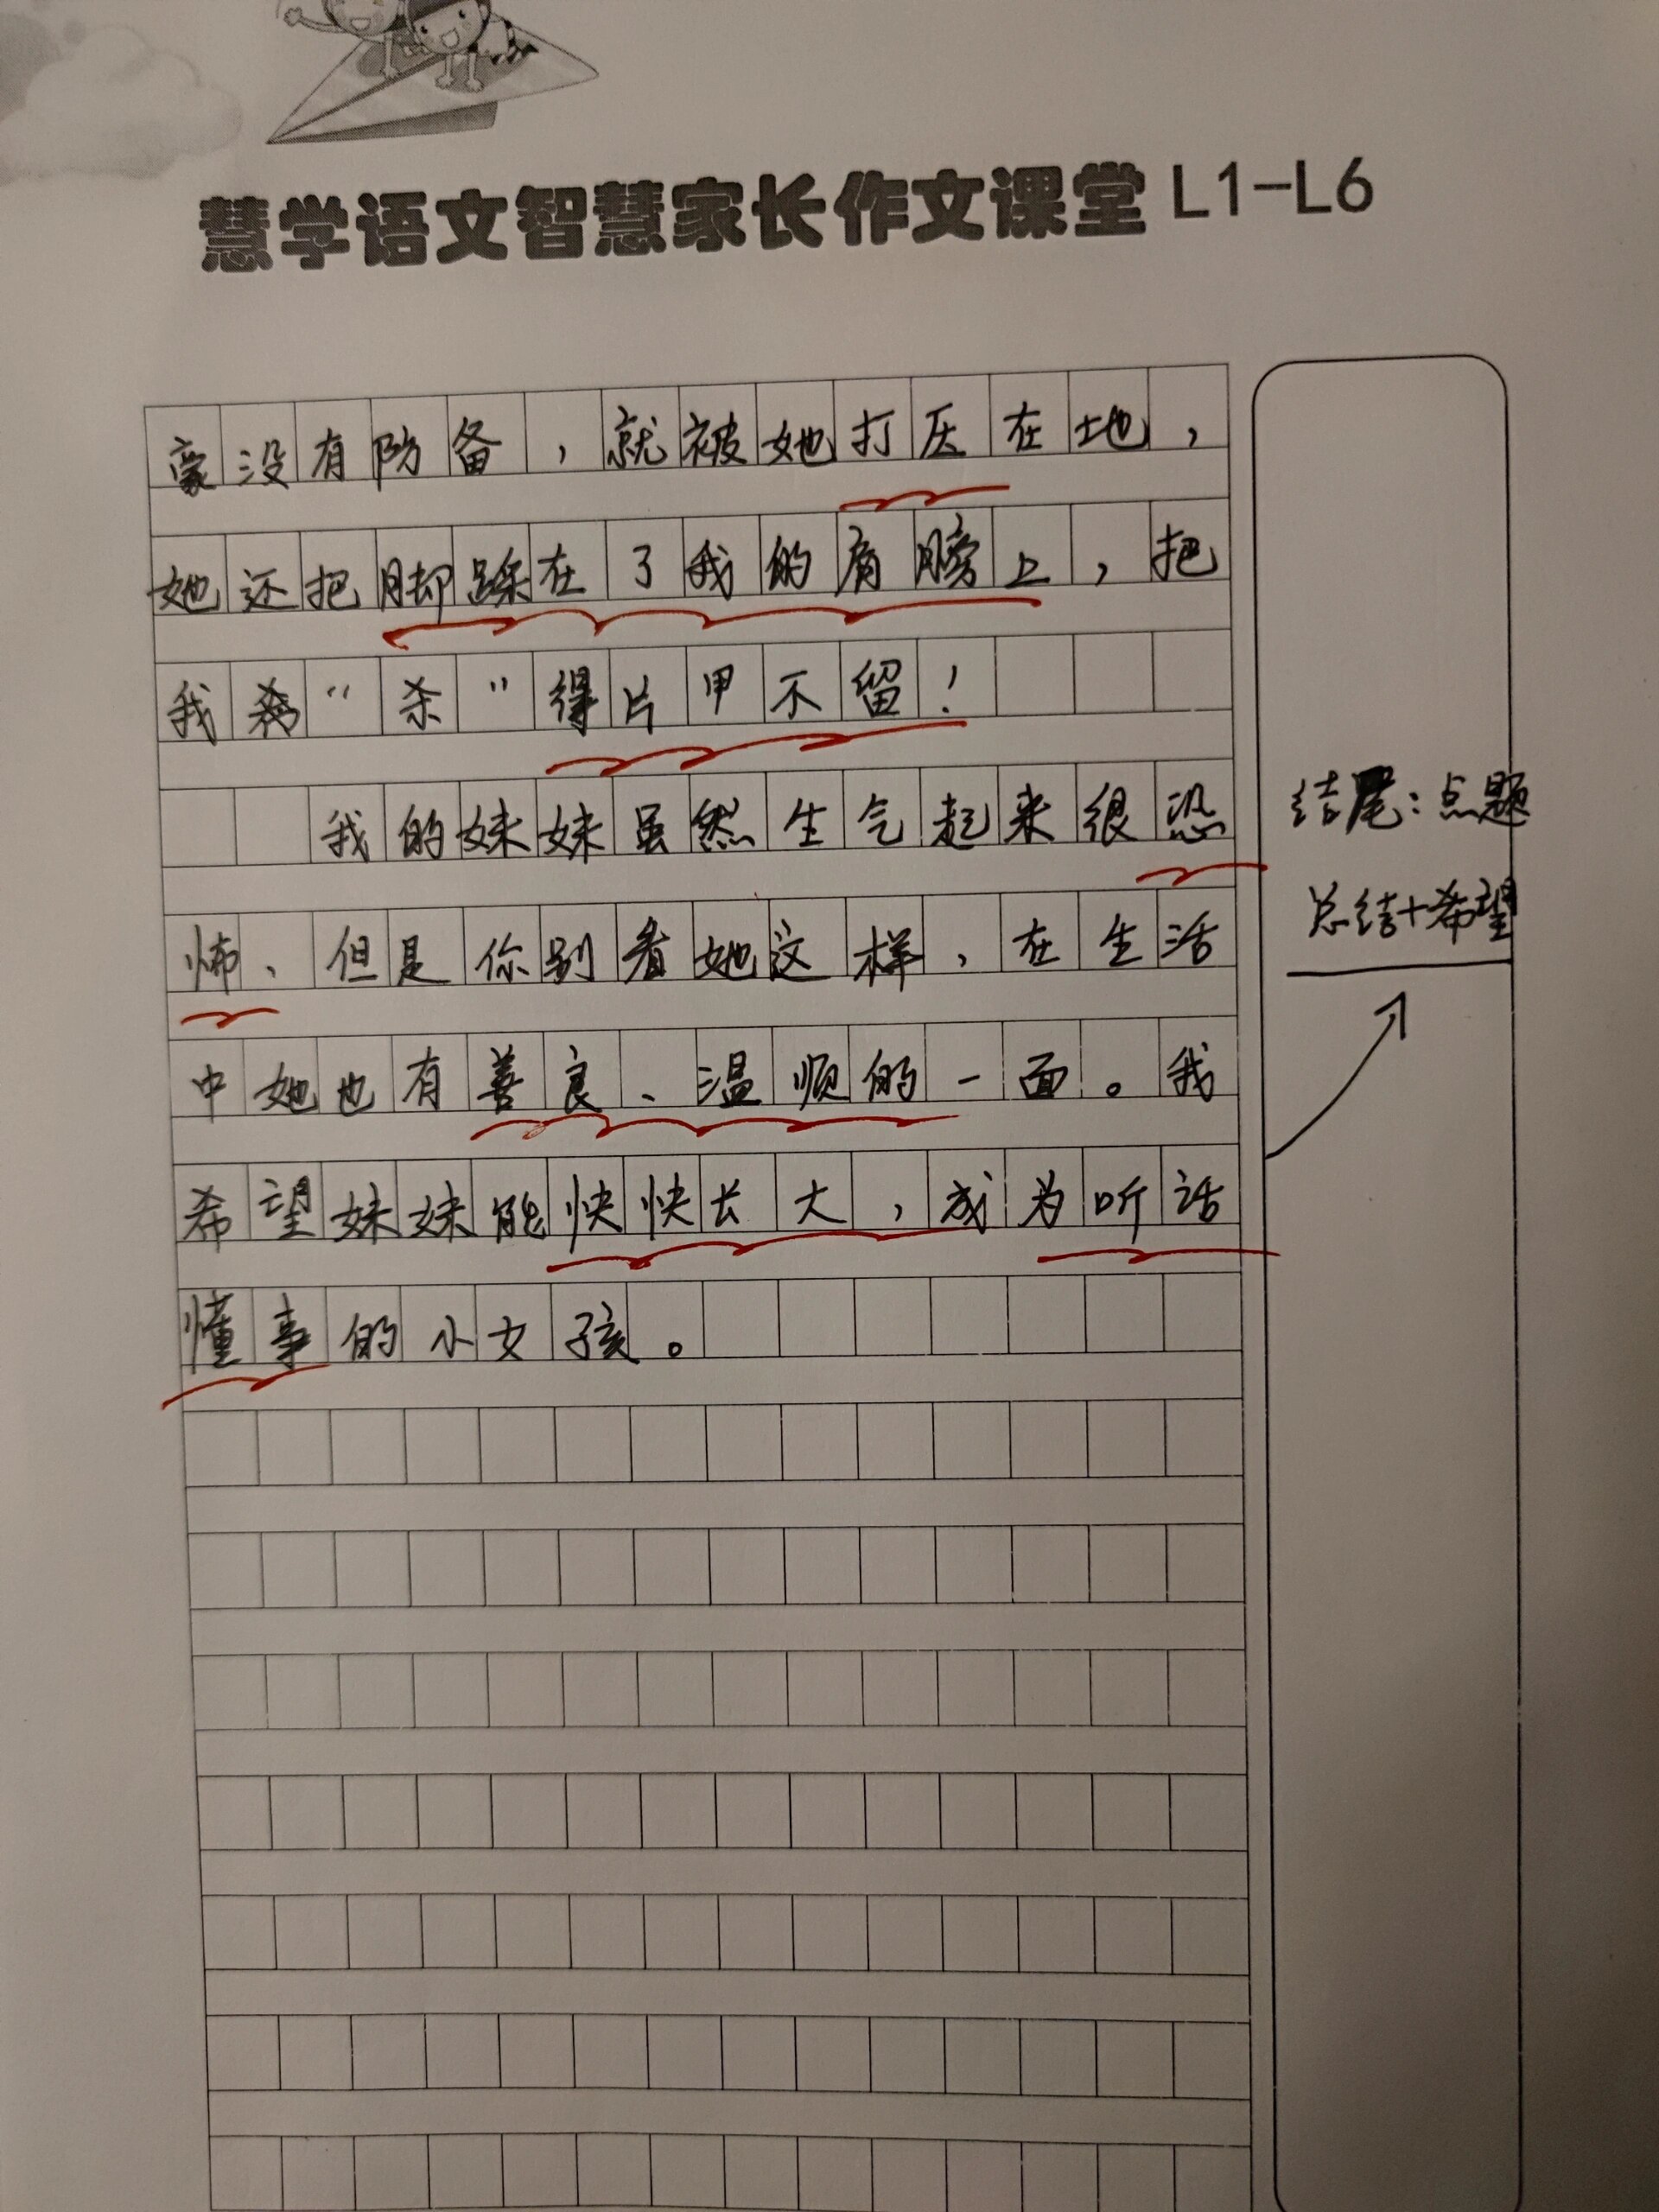 慧学语文智慧家长作文课堂 L1-L6
豪没有防备，就被她打压在地，
她还把脚踩在了我的肩膀上，把
我“杀”得片甲不留！
我的妹妹虽然生气起来很恐
怖、但是你别看她这样，在生活
中她也有善良、温顺的一面。我
希望妹妹能快快长大，成为听话
懂事的小女孩。
结尾：点题
总结+希望